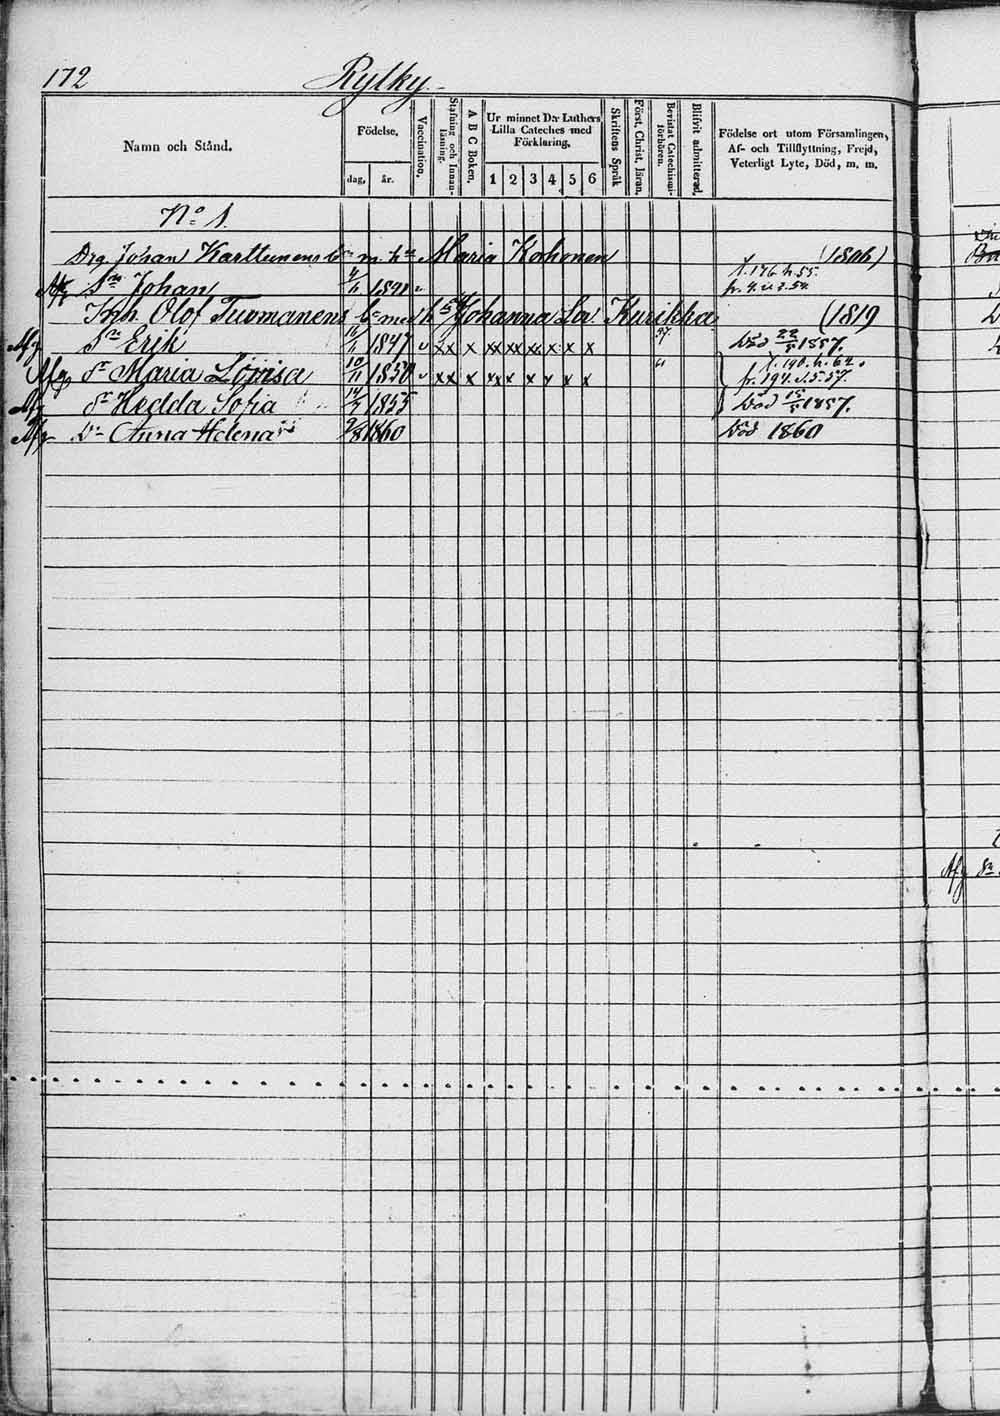 172 Rytky.
Namn och Stånd.
Födelse,
dag, år.
Vaccination,
Stafning och Innan-läsning.
A B C Boken,
Ur minnet D:r Luthers Lilla Cateches med Förklaring,
1 2 3 4 5 6
Skriftens Språk
Först. Christ. läran.
Bevistat Catechismi-förhören.
Blifvit admitterad,
Födelse ort utom Församlingen, Af- och Tillflyttning, Frejd, Veterligt Lyte, Död, m. m.
No 1.
Drg. Johan Karttunens m. h. Maria Korhonen (1806)
Afg Sn Johan
fr. 4. 54.
Inh. Olof Tuomanens med h. Johanna Lov. Kurikka (1819)
Afg Sn Erik 1847 xx x xx xx xx x x x 57 död 22/5 1857.
Afg Dr Maria Lovisa 10/11 1850 xx x xx x x x x x 61 fr. 194. 5. 57.
Afg Dr Hedda Sofia 1855 död 15/5 1857.
Afg Dr Anna Helena 1860 död 1860
Afg